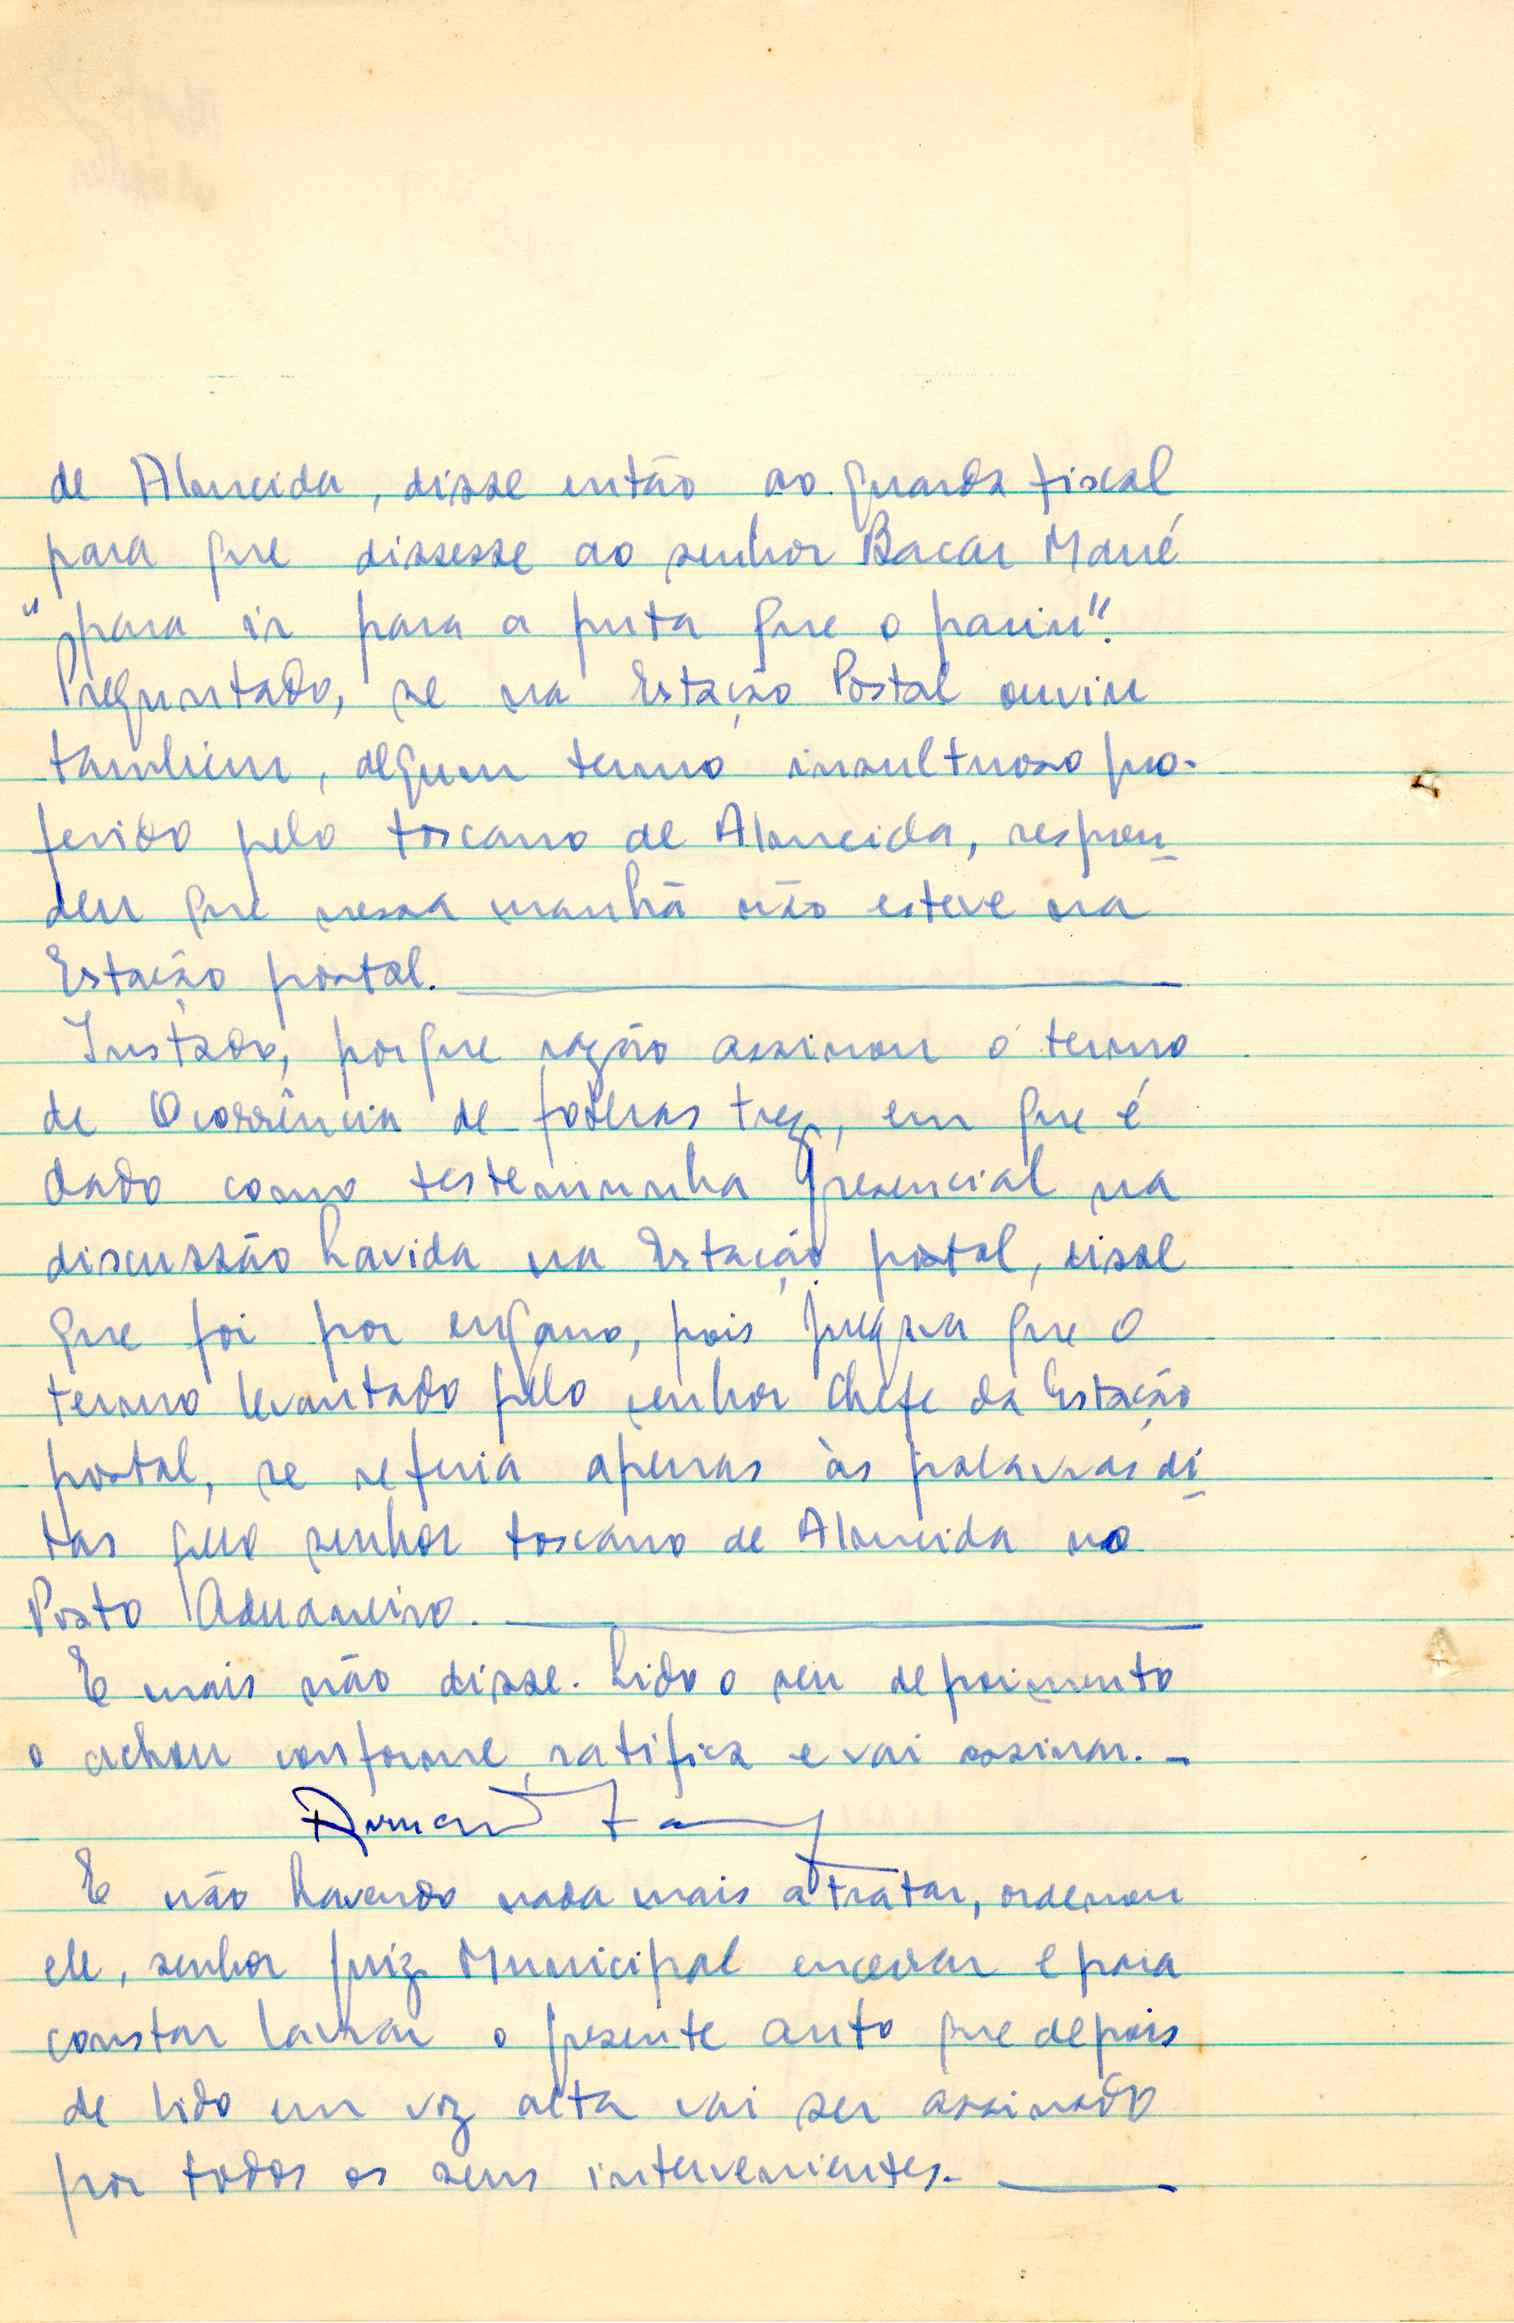 de Almeida, disse então ao guarda fiscal
para que dissesse ao senhor Bacar Mané
"para ir para a puta que o pariu".
Preguntado, se na Estação Postal ouviu
tambêm, algum termo insultuoso pro-
ferido pelo toscano de Almeida, respon-
deu que nessa manhã não esteve na
Estação postal.
Instado, porque razão assinou o termo
de Ocorrência de folhas trez, em que é
dado como testemunha presencial na
discussão havida na Estação postal, disse
que foi por engano, pois julgava que o
termo levantado pelo senhor chefe da Estação
postal, se referia apenas às palavras di-
tas pelo senhor toscano de Almeida no
Posto Aduaneiro.
E mais não disse. Lido o seu depoimento
o achou conforme, ratifica e vai assinar. -
E não havendo nada mais a tratar, ordenou
ele, senhor juiz Municipal encerrar e para
constar lavrar o presente auto que depois
de lido em voz alta vai ser assinado
por todos os seus intervenientes.-